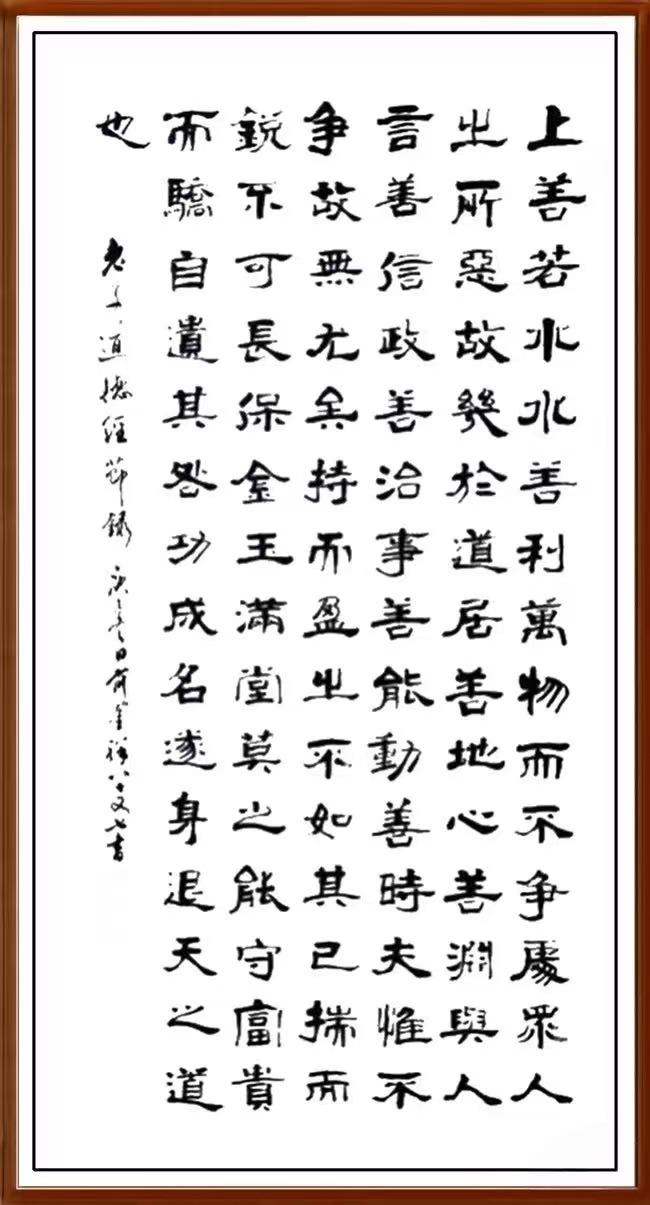 上善若水水善利萬物而不争處眾人
之所惡故幾於道居善地心善淵與人
言善信政善治事善能動善時夫惟不
争故無尤矣持而盈之不如其已揣而
鋭不可長保金玉滿堂莫之能守富貴
而驕自遺其咎功成名遂身退天之道
也
老子道德經節錄 日 金祥八十又七書